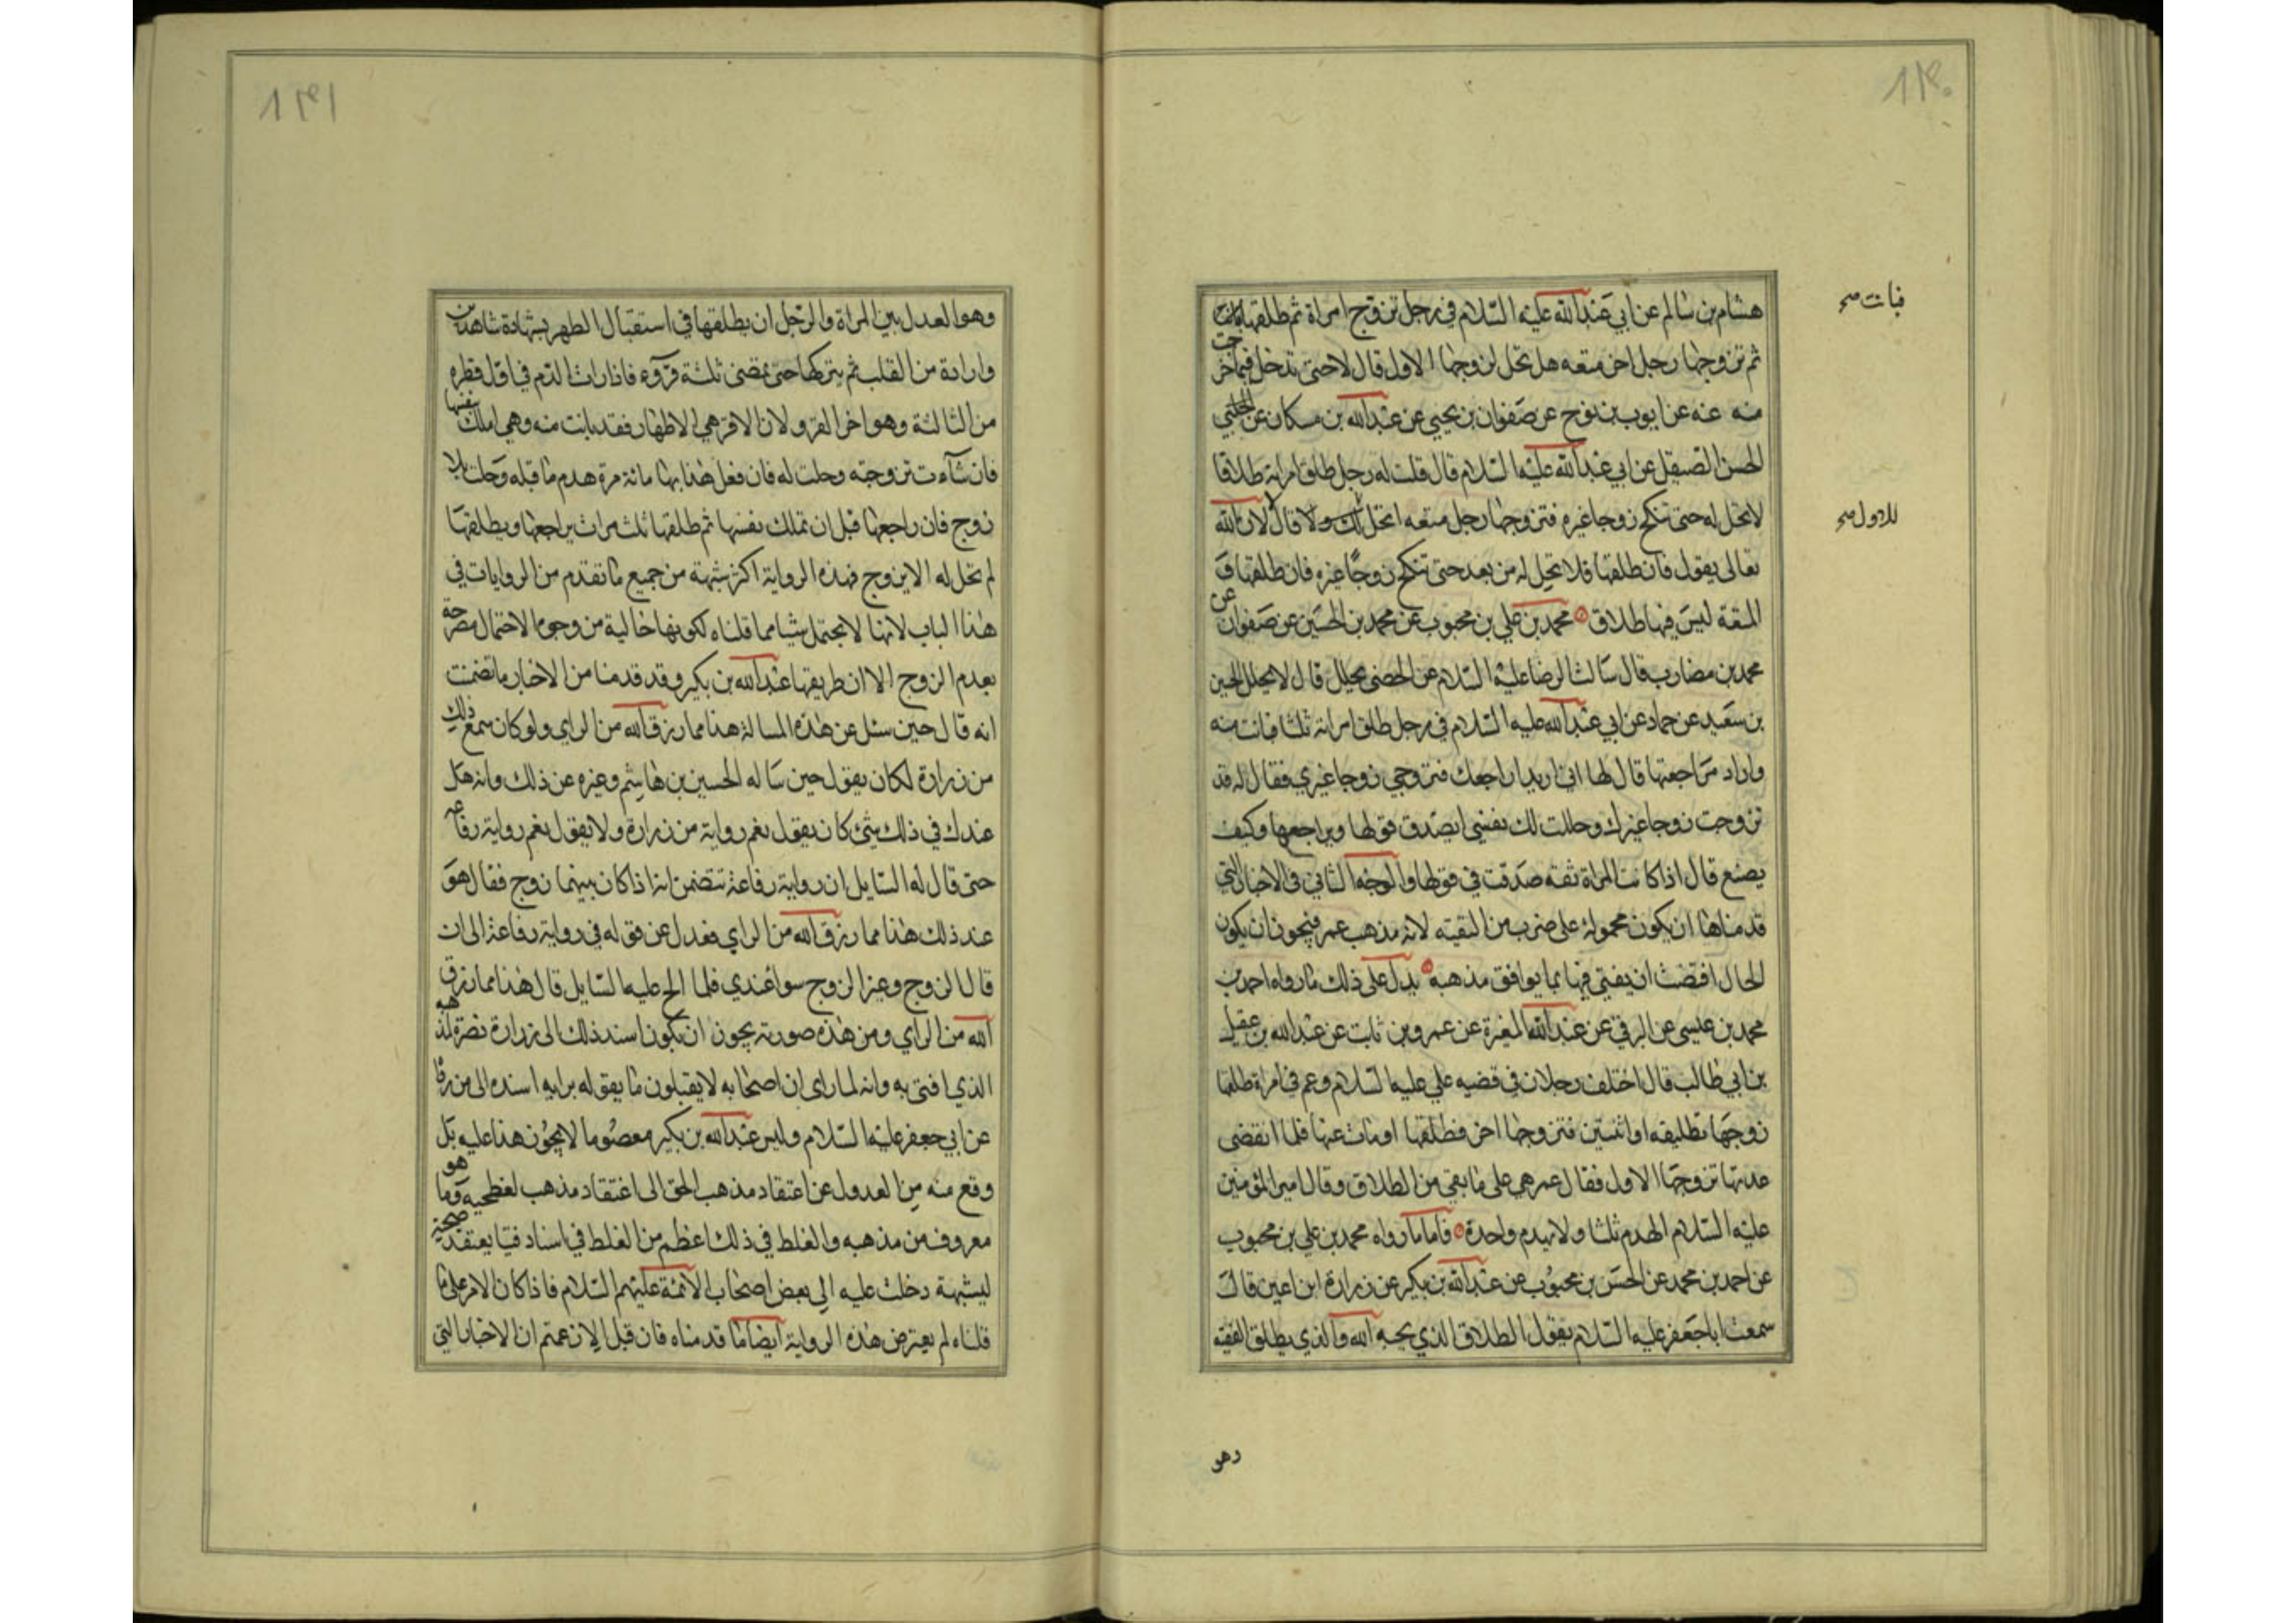 ١٩٠
هشام بن سالم عن ابي عبدالله عليه السلام في رجل تزوج امراة ثم طلقها
فبانت صح
ثم تزوجها رجل اخر متعه هل تحل لزوجها الاول قال لا حتى تدخل فيما خرجت
منه عنه عن ايوب بن نوح عن صفوان بن يحيى عن عبدالله بن مسكان عن
الحسن الصيقل عن ابي عبدالله عليه السلام قال قلت له رجل طلق امراته طلاقا
لا تحل له حتى تنكح زوجا غيره فتزوجها رجل متعه اتحل قال لا لان الله
للاول صح
تعالى يقول فان طلقها فلا تحل له من بعد حتى تنكح زوجا غيره فان طلقها و
المتعة ليس فيها طلاق محمد بن علي بن محبوب عن محمد بن الحسين عن صفوان عن
محمد بن مضارب قال سالت الرضا عليه السلام عن الخصي يحلل قال لا يحلل الحسين
بن سعيد عن حماد عن ابي عبدالله عليه السلام في رجل طلق امراته ثلثا فبانت منه
واراد مراجعتها قال لها اني اريد اراجعك فتزوجي زوجا غيري فقال له قد
تزوجت زوجا غيرك وحللت لك نفسي ايصدق قولها ويراجعها وكيف
يصنع قال اذا كانت المراة ثقه صدقت في قولها والوجه الثاني في الاخبار التي
قدمناها ان يكون محمولة على ضرب من التقيه لانه مذهب عمر فيجوز ان يكون
الحال اقتضت ان يفتي فيها بما يوافق مذهبه يدل على ذلك ما رواه احمد بن
محمد بن عيسى عن البرقي عن عبدالله المغيرة عن عمرو بن ثابت عن عبدالله بن عقيل
بن ابي طالب قال اختلف رجلان في قضيه علي عليه السلام وعمر في امراة طلقها
زوجها تطليقه او اثنتين فتزوجها اخر فطلقها او مات عنها فلما انقضى
عدتها تزوجها الاول فقال عمر هي على ما بقي من الطلاق وقال امير المؤمنين
عليه السلام الهدم ثلثا ولا يهدم واحدة فاما ما رواه محمد بن علي بن محبوب
عن احمد بن محمد عن الحسن بن محبوب عن عبدالله بن بكير عن زرارة ابن اعين قال
سمعت ابا جعفر عليه السلام يقول الطلاق الذي يحبه الله والذي يطلق الفقيه
وهو
١٩١
وهو العدل بين المراة والرجل ان يطلقها في استقبال الطهر بشهادة شاهدين
وارادة من القلب ثم يتركها حتى يمضى ثلثة قروء فاذا رات الدم في اول قطره
من الثالثة وهو اخر القرو لان الاقر هي الاطهار فقد بانت منه وهي املك بنفسها
فان شآءت تزوجته وحلت له فان فعل هذا بها مائة مرة هدم ما قبله وحلت بلا
زوج فان راجعها قبل ان تملك نفسها ثم طلقها ثلث مرات يراجعها ويطلقها
لم تحل له الا بزوج فهذه الرواية اكثر شبهة من جميع ما تقدم من الروايات في
هذا الباب لانها لا يحتمل شيا مما قلناه لكونها خالية من وجوه الاحتمال مصرحة
بعدم الزوج الا ان طريقها عبدالله بن بكير وقد قدمنا من الاخبار ما تضمنت
انه قال حين سئل عن هذه المسالة هذا مما رزق الله من الراي ولو كان سمع ذلك
من زرارة لكان يقول حين ساله الحسين بن هاشم وغيره عن ذلك وانه هل
عندك في ذلك شيئ كان يقول نعم رواية من زرارة ولا يقول نعم رواية رفاعه
حتى قال له السايل ان رواية رفاعة تتضمن انه اذا كان بينهما زوج فقال هو
عند ذلك هذا مما رزق الله من الراي فعدل عن قوله في رواية رفاعة الى ان
قال الزوج وغير الزوج سوا عندي فلما الح عليه السايل قال هذا مما رزق
الله من الراي ومن هذه صورته يجوز ان يكون اسند ذلك الى زرارة نصرة لمذهبه
الذي افتى به وانه لما راى ان اصحابه لا يقبلون ما يقوله برايه اسنده الى من رواه
عن ابي جعفر عليه السلام وليس عبدالله بن بكير معصوما لا يجوز هذا عليه بل
وقع منه من العدول عن اعتقاد مذهب الحق الى اعتقاد مذهب لفطحيه وما هو
معروف من مذهبه والغلط في ذلك اعظم من الغلط في اسناد فتيا يعتقد صحته
ليشبهة دخلت عليه الى بعض اصحاب الائمة عليهم السلام فاذا كان الامر على ما
قلناه لم يعترض هذه الرواية ايضا ما قدمناه فان قيل الان زعمتم ان الاخبار التي